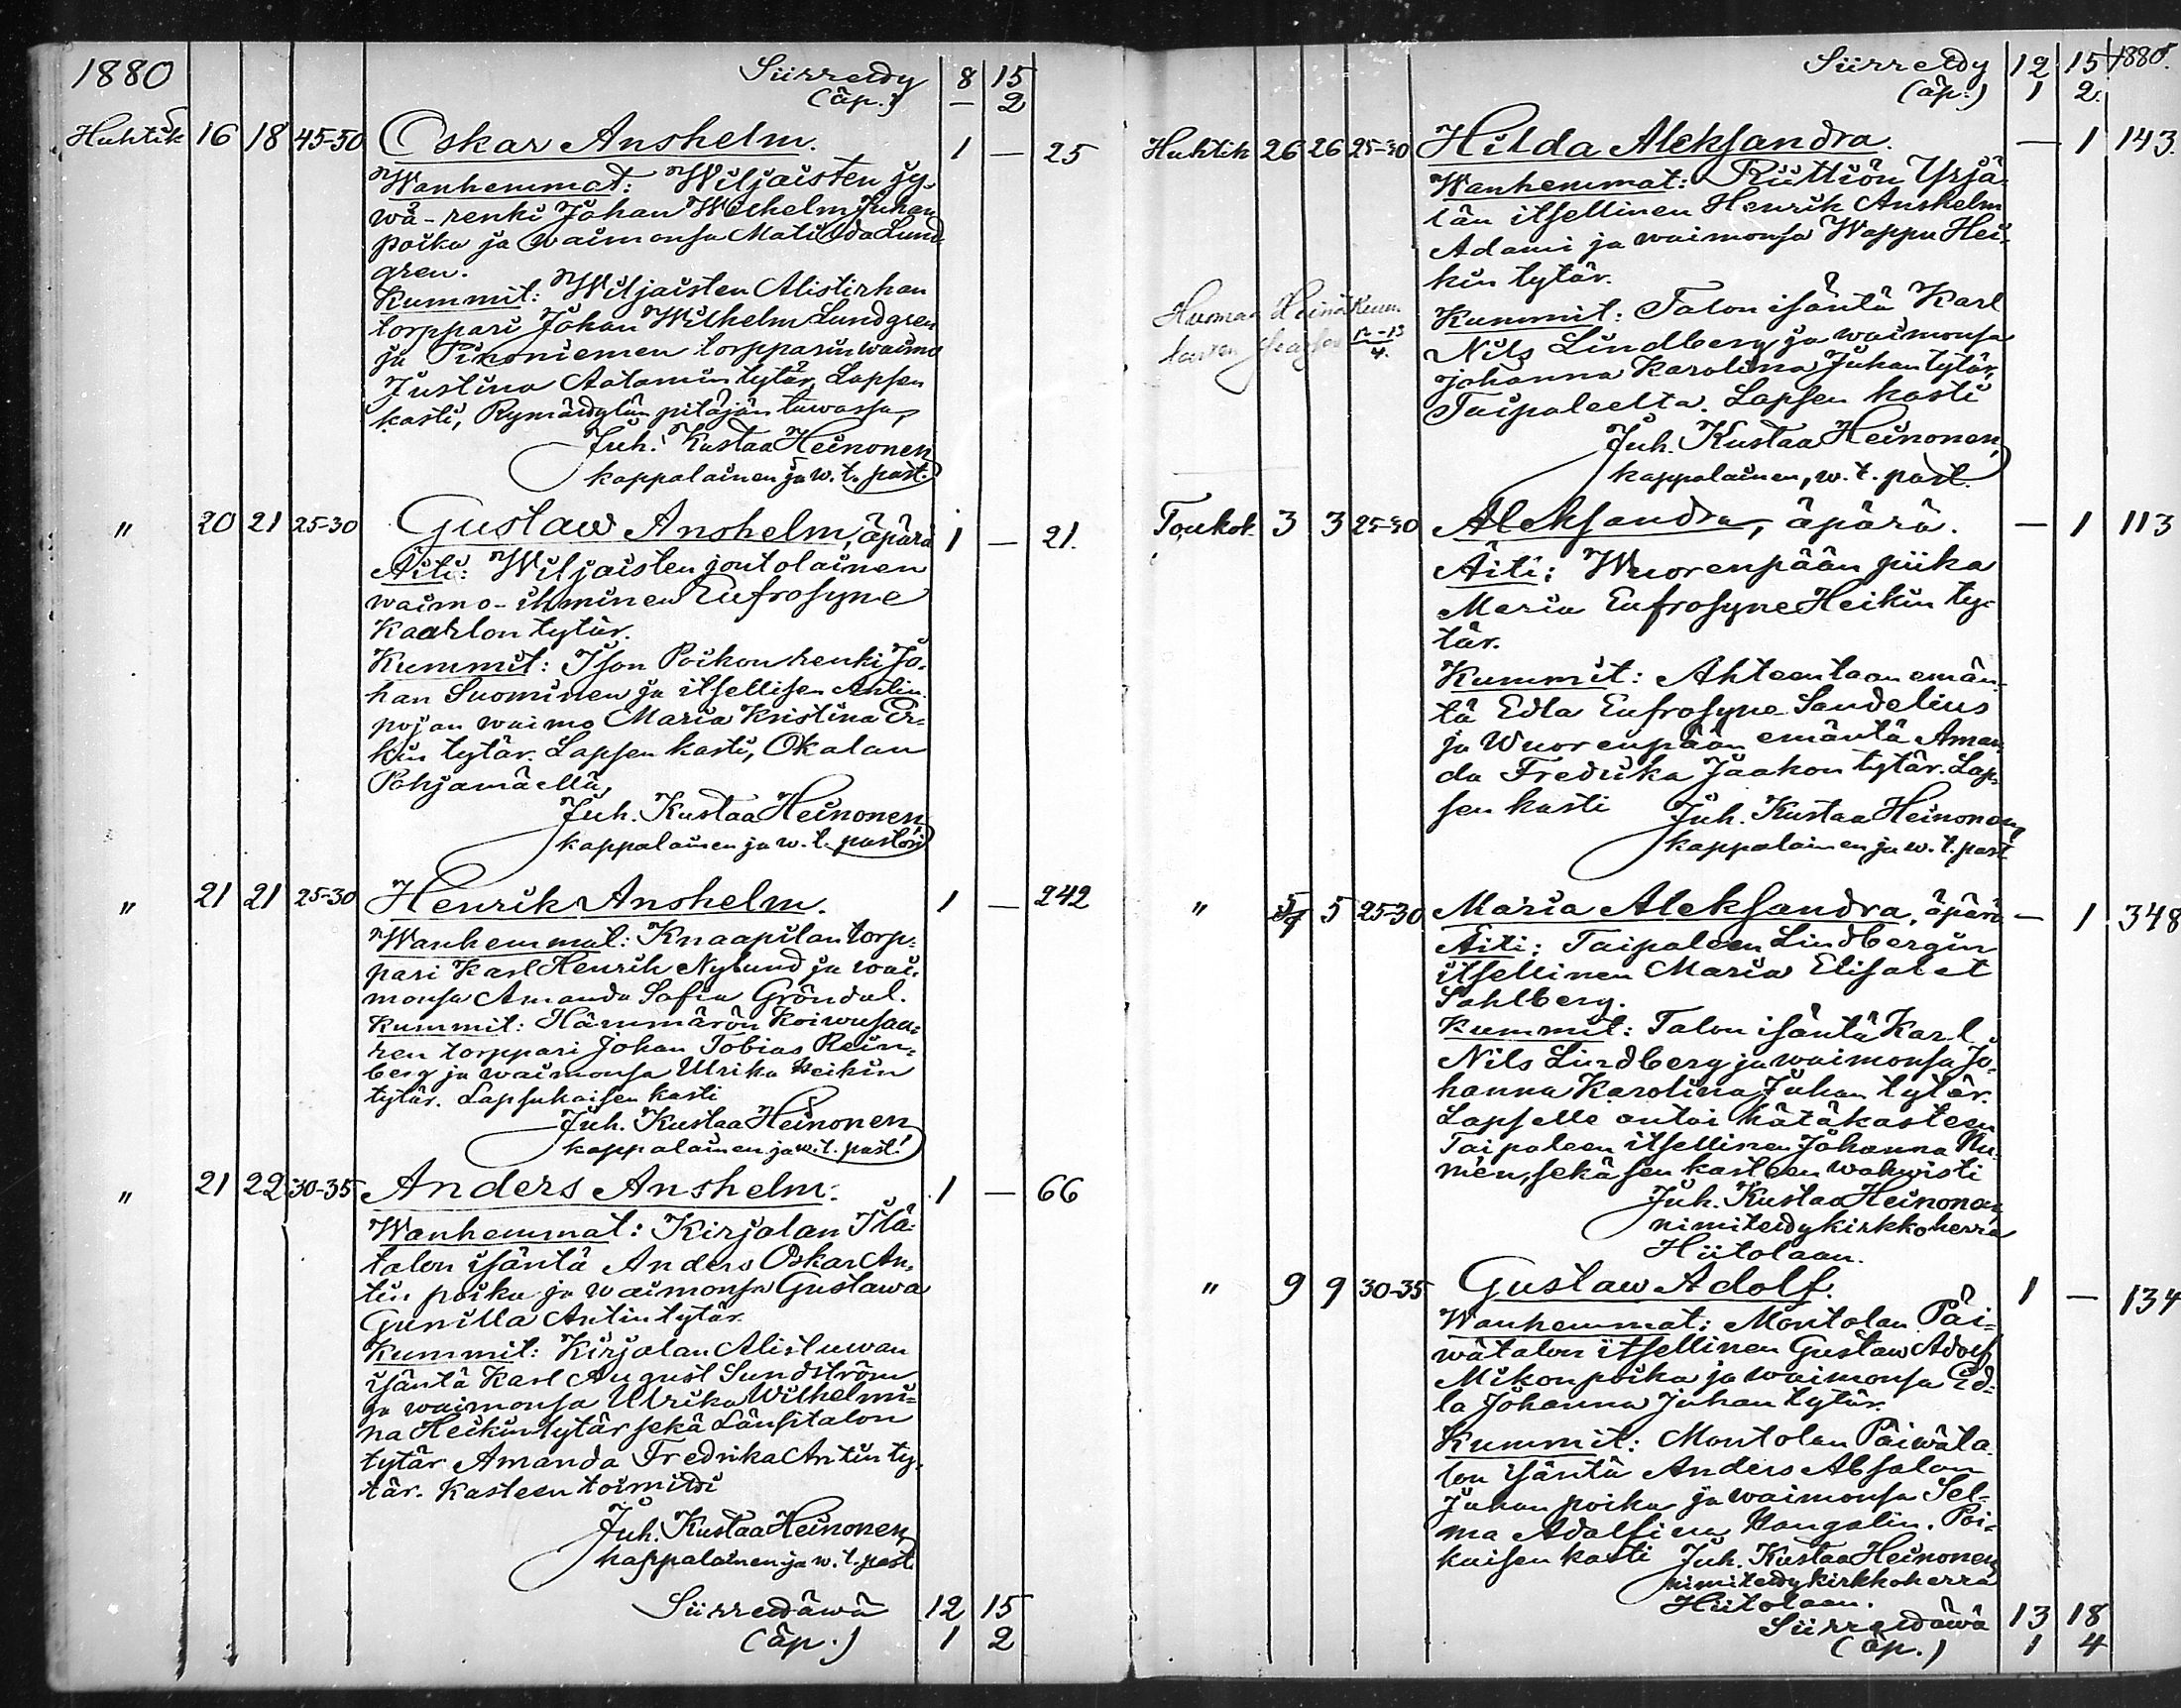 1880 Siirretty 8 15
(äp.) — 2
Huhtik 16 18 45-50 Oskar Anshelm. 1 — 25
Wanhemmat: Wiljaisten jy-
wä-renki Johan Wilhelm Juhan
poika ja waimonsa Matilda Lund
gren.
Kummit: Wiljaisten Alistirhan
torppari Johan Wilhelm Lundgren
ja Pikoniemen torpparin waimo
Justina Aatamin tytär. Lapsen
kasti, Rymättylän pitäjän tuwassa,
Juh. Kustaa Heinonen
kappalainen ja w. t. past.
" 20 21 25-30 Gustaw Anshelm, äpärä 1 — 21.
Äiti: Wiljaisten joutolainen
waimo-ihminen Eufrosyne
Kaarlon tytär.
Kummit: Ison Poikon renki Jo-
han Suominen ja itsellisen Antin
pojan waimo Maria Kristina Er-
kin tytär. Lapsen kasti, Okalan
Pohjamäellä,
Juh. Kustaa Heinonen,
kappalainen ja w. t. pastori
" 21 21 25-30 Henrik Anshelm. 1 — 242
Wanhemmat: Knaapilan torp-
pari Karl Henrik Nylund ja wai-
monsa Amanda Sofia Gröndal.
Kummit: Hämmärön Koiwusaa-
ren torppari Johan Tobias Rein-
berg ja waimonsa Ulrika Heikin
tytär. Lapsukaisen kasti
Juh. Kustaa Heinonen
kappalainen ja w. t. past.
" 21 22 30-35 Anders Anshelm. 1 — 66
Wanhemmat: Kirjalan Ylä-
talon isäntä Anders Oskar An-
tin poika ja waimonsa Gustawa
Gunilla Antin tytär.
Kummit: Kirjalan Alistuwan
isäntä Karl August Sundström
ja waimonsa Ulrika Wilhelmi-
na Heikin tytär sekä Länsitalon
tytär Amanda Fredrika Antin ty-
tär. Kasteen toimitti
Juh. Kustaa Heinonen,
kappalainen ja w. t. past.
Siirrettäwä 12 15
(äp.) 1 2
Siirretty 12 15 1880.
(äp.) 1 2.
Huhtik 26 26 25-30 Hilda Aleksandra. — 1 143.
Wanhemmat: Riittiön Yrjä-
län itsellinen Henrik Anshelm
Adami ja waimonsa Wappu Hei-
kin tytär.
Kummit: Talon isäntä Karl
Nils Lindberg ja waimonsa
Johanna Karolina Juhan tytär,
Taipaleelta. Lapsen kasti
Juh. Kustaa Heinonen,
kappalainen, w. t. past.
Toukok. 3 3 25-30 Aleksandra, äpärä. — 1 113
Äiti: Wuorenpään piika
Maria Eufrosyne Heikin ty-
tär.
Kummit: Ahteentaan emän-
tä Edla Eufrosyne Sandelius
ja Wuorenpään emäntä Aman
da Fredrika Jaakon tytär. Lap-
sen kasti Juh. Kustaa Heinonen,
kappalainen ja w. t. past
" 5 5 25-30 Maria Aleksandra, äpärä — 1 348
Äiti: Taipaleen Lindbergin
itsellinen Maria Elisabet
Sahlberg.
Kummit: Talon isäntä Karl
Nils Lindberg ja waimonsa Jo-
hanna Karolina Juhan tytär.
Lapselle antoi hätäkasteen
Taipaleen itsellinen Johanna Nu-
men, sekä sen kasteen wahwisti
Juh. Kustaa Heinonen,
nimitetty kirkkoherra
Hiitolaan.
" 9 9 30-35 Gustaw Adolf. 1 — 134
Wanhemmat: Montolan Päi-
wätalon itsellinen Gustaw Adolf
Mikonpoika ja waimonsa Ed-
la Johanna Juhan tytär.
Kummit: Montolan Päiwäta-
lon isäntä Anders Absalon
Juhan poika ja waimonsa Sel-
ma Adolfina Hangelin. Poi-
kaisen kasti Juh. Kustaa Heinonen,
nimitetty kirkkoherra
Hiitolaan.
Siirrettäwä 13 18
(äp.) 1 4